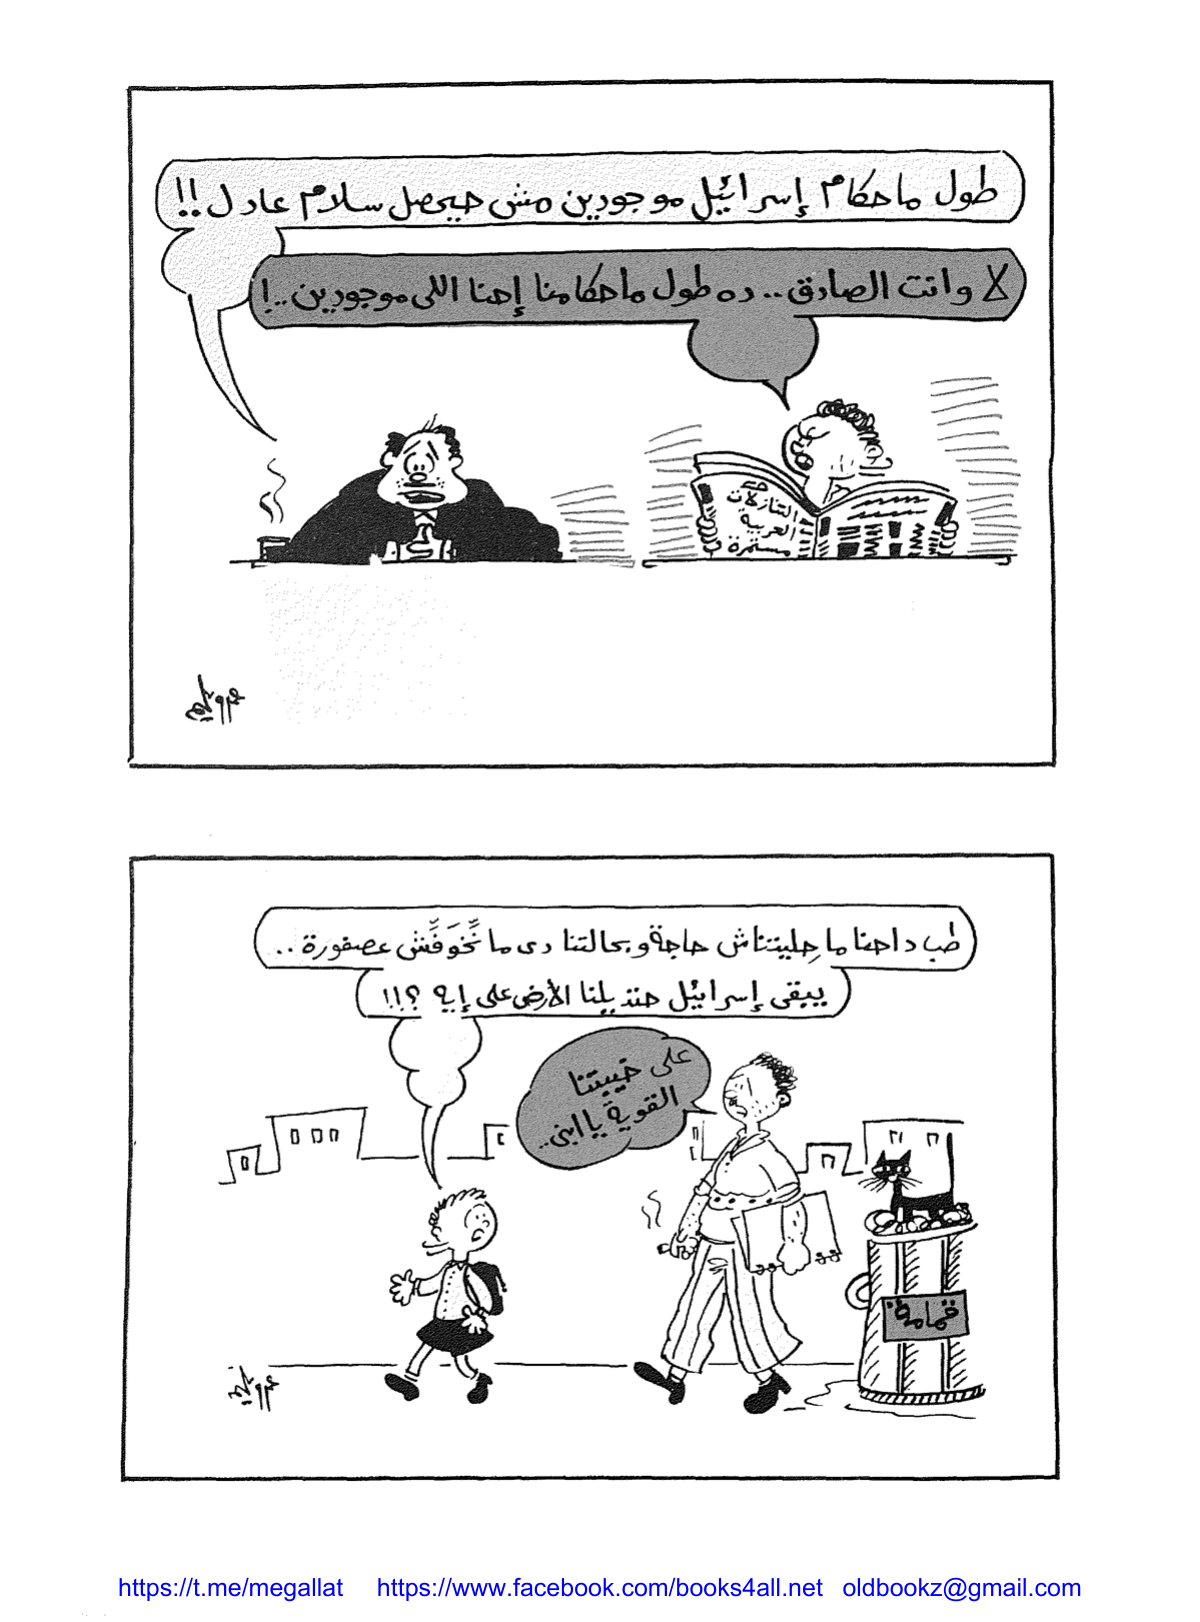 طول ما حكام إسرائيل موجودين مش حيحصل سلام عادل!!
لا وانت الصادق.. ده طول ما حكامنا إحنا اللى موجودين..!
التنازلات
العربية
مستمرة
عمرو سليم
طب داحنا ما حليتناش حاجة وبحالتنا دى ما نِّخَوَفِّش عصفورة..
يبقى إسرائيل حتديلنا الأرض على إيه ؟!!
على خيبتنا
القوية يا ابنى..
قمامة
عمرو سليم
https://t.me/megallat https://www.facebook.com/books4all.net oldbookz@gmail.com